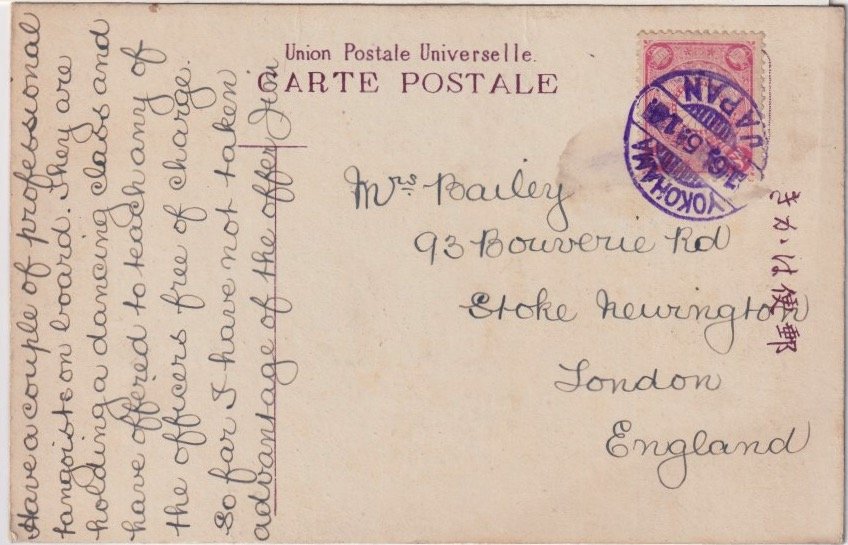 Union Postale Universelle.
CARTE POSTALE
YOKOHAMA
JAPAN
Mrs Bailey
93 Bouverie Rd
Stoke Newington
London
England
郵便はがき
Have a couple of professional
tangoists on board. They are
holding a dancing class and
have offered to teach any of
the officers free of charge.
So far I have not taken
advantage of the offer Jim